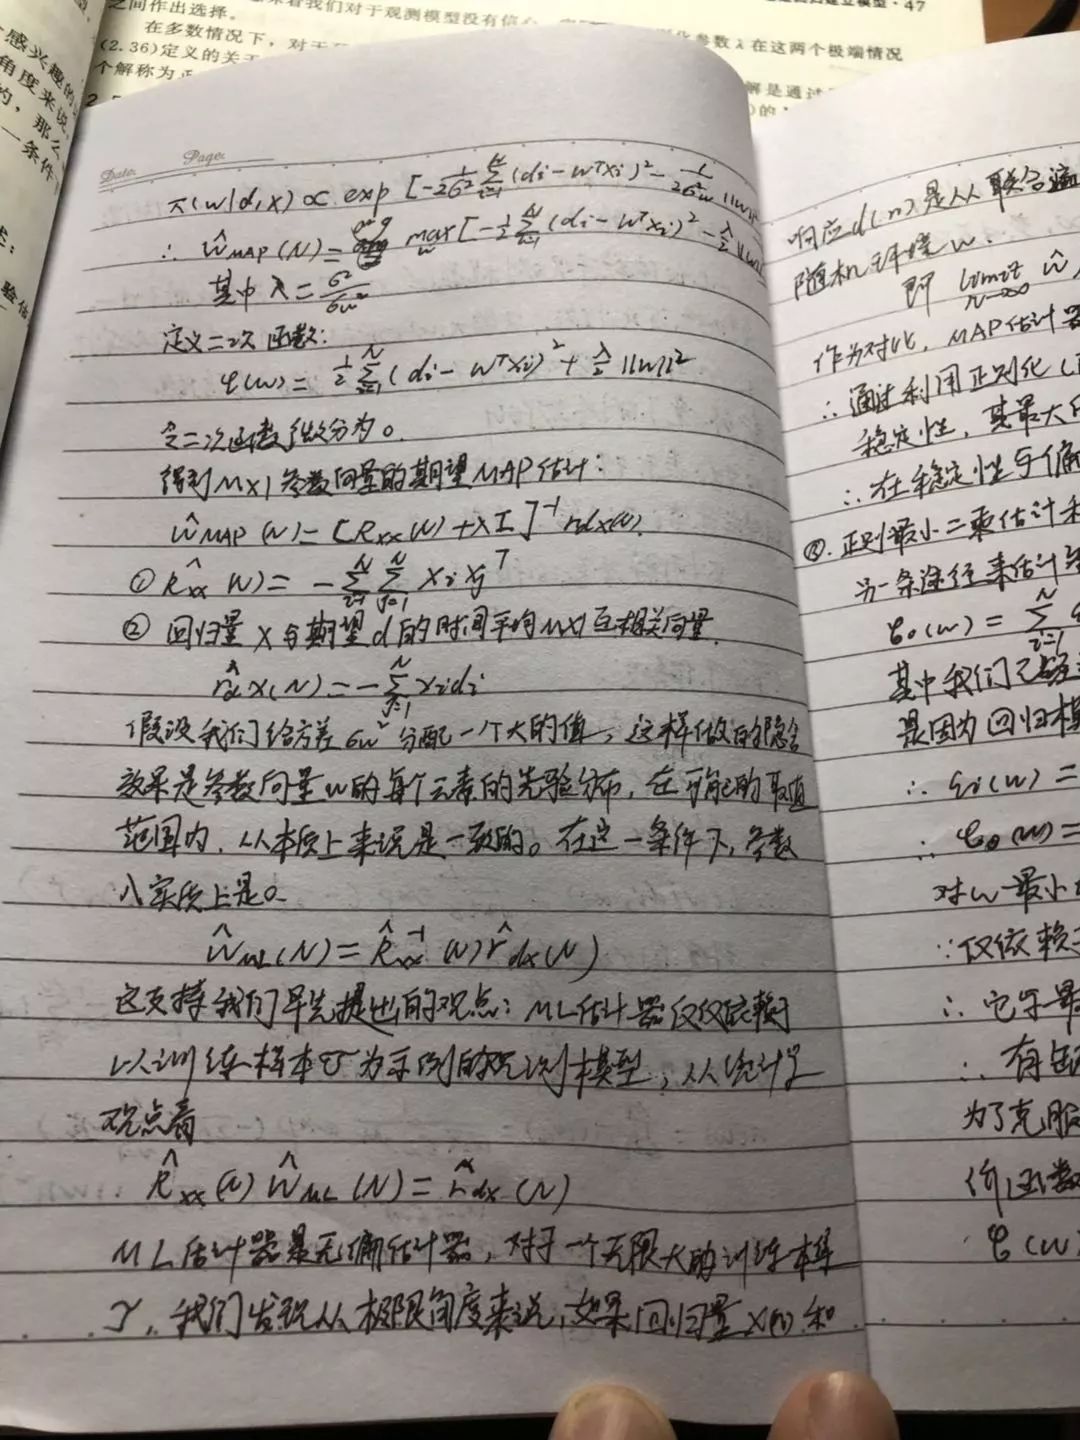 之间作出选择。
建立模型·47
在多数情况下，对于
参数λ在这两个极端情况
(2.36)定义的关于
个解称为正
解是通过
感兴趣的
角度来说，
的，那么
一条件
验估
Date. Page:
π(w|d,x) ∝ exp [-1/2σ² Σ_{i=1}^N (di-wᵀxi)² - 1/2σw² ||w||²
∴ ŵMAP(N) = arg max_w [-1/2 Σ_{i=1}^N (di-wᵀxi)² - λ/2 ||w||
其中 λ = σ²/σw²
定义二次函数:
ε(w) = 1/2 Σ_{i=1}^N (di-wᵀxi)² + λ/2 ||w||²
令二次函数微分为0.
得到M×1参数向量的期望MAP估计:
ŵMAP(N) = [Rxx(N)+λI]⁻¹ rdx(N).
① R̂xx(N) = -Σ_{i=1}^N Σ_{j=1}^N xi xjᵀ
② 回归量x与期望d的时间平均M×1互相关向量.
r̂dx(N) = -Σ_{i=1}^N xidi
假设我们给方差σw²分配一个大的值，这样做的隐含
效果是参数向量w的每个元素的先验分布，在可能的取值
范围内，从本质上来说是一致的。在这一条件下，参数
λ实质上是0.
ŵML(N) = R̂xx⁻¹(N) r̂dx(N)
这支持我们早先提出的观点：ML估计器仅仅依赖于
以训练样本τ为示例的观测模型，从统计学
观点看
R̂xx(N) ŵML(N) = r̂dx(N)
ML估计器是无偏估计器，对于一个无限大的训练样本
τ，我们发现从极限角度来说，如果回归量x(n)和
响应d(n)是从联合遍
随机环境w.
即 limit_{N→∞} ŵ
作为对比，MAP估计器
∴通过利用正则化(
稳定性，其最大
∴在稳定性与偏
③.正则最小二乘估计和
另一条途径来估计
ε₀(w) = Σ_{i=1}^N
其中我们已经
是因为回归模
∴ εi(w) =
∴ ε₀(w) =
对w最小
∵仅依赖
∴它与最
∴有
为了克服
价函数
ε(w)